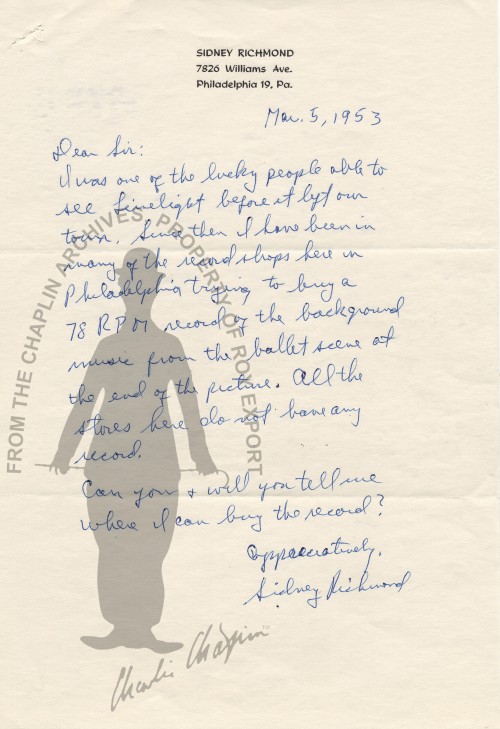 SIDNEY RICHMOND
7826 Williams Ave.
Philadelphia 19, Pa.
Mar. 5, 1953
Dear Sir:
I was one of the lucky people able to
see Limelight before it left our
town. Since then I have been in
many of the record shops here in
Philadelphia trying to buy a
78 RPM record of the background
music from the ballet scene at
the end of the picture. All the
stores here do not have any
record.
Can you & will you tell me
where I can buy the record?
Appreciatively,
Sidney Richmond
FROM THE CHAPLIN ARCHIVES. PROPERTY OF ROY EXPORT
Charlie Chaplin™